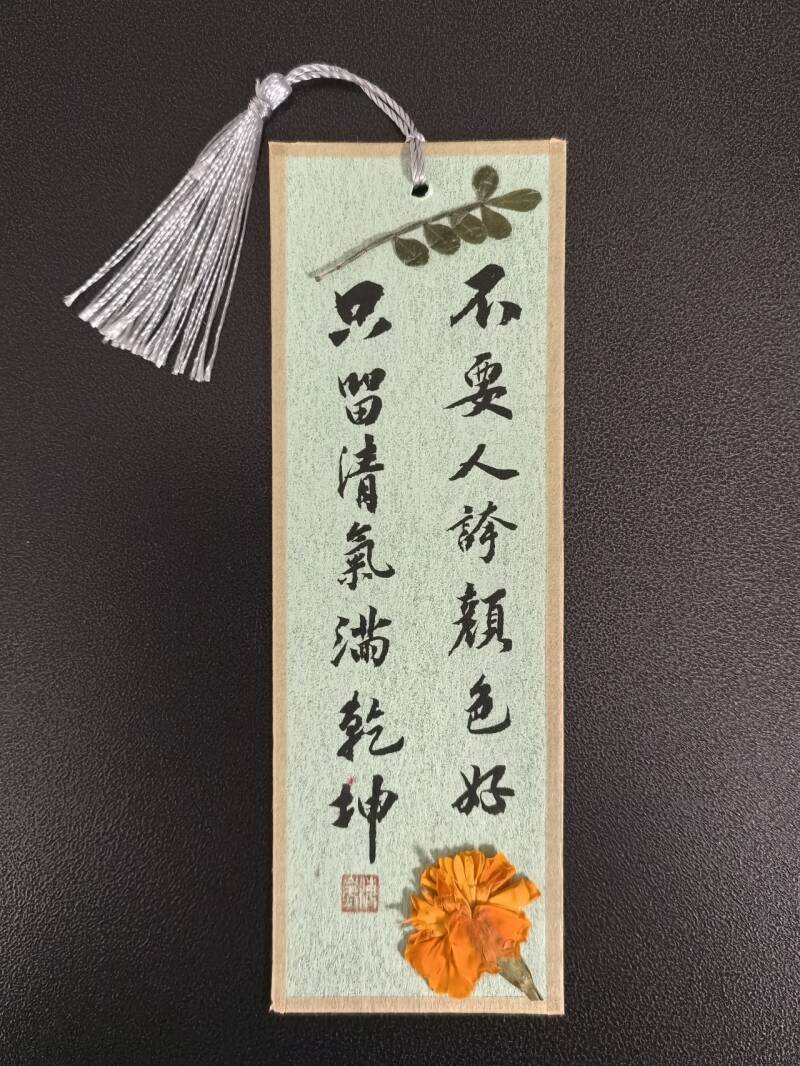 不要人誇顏色好
只留清氣滿乾坤